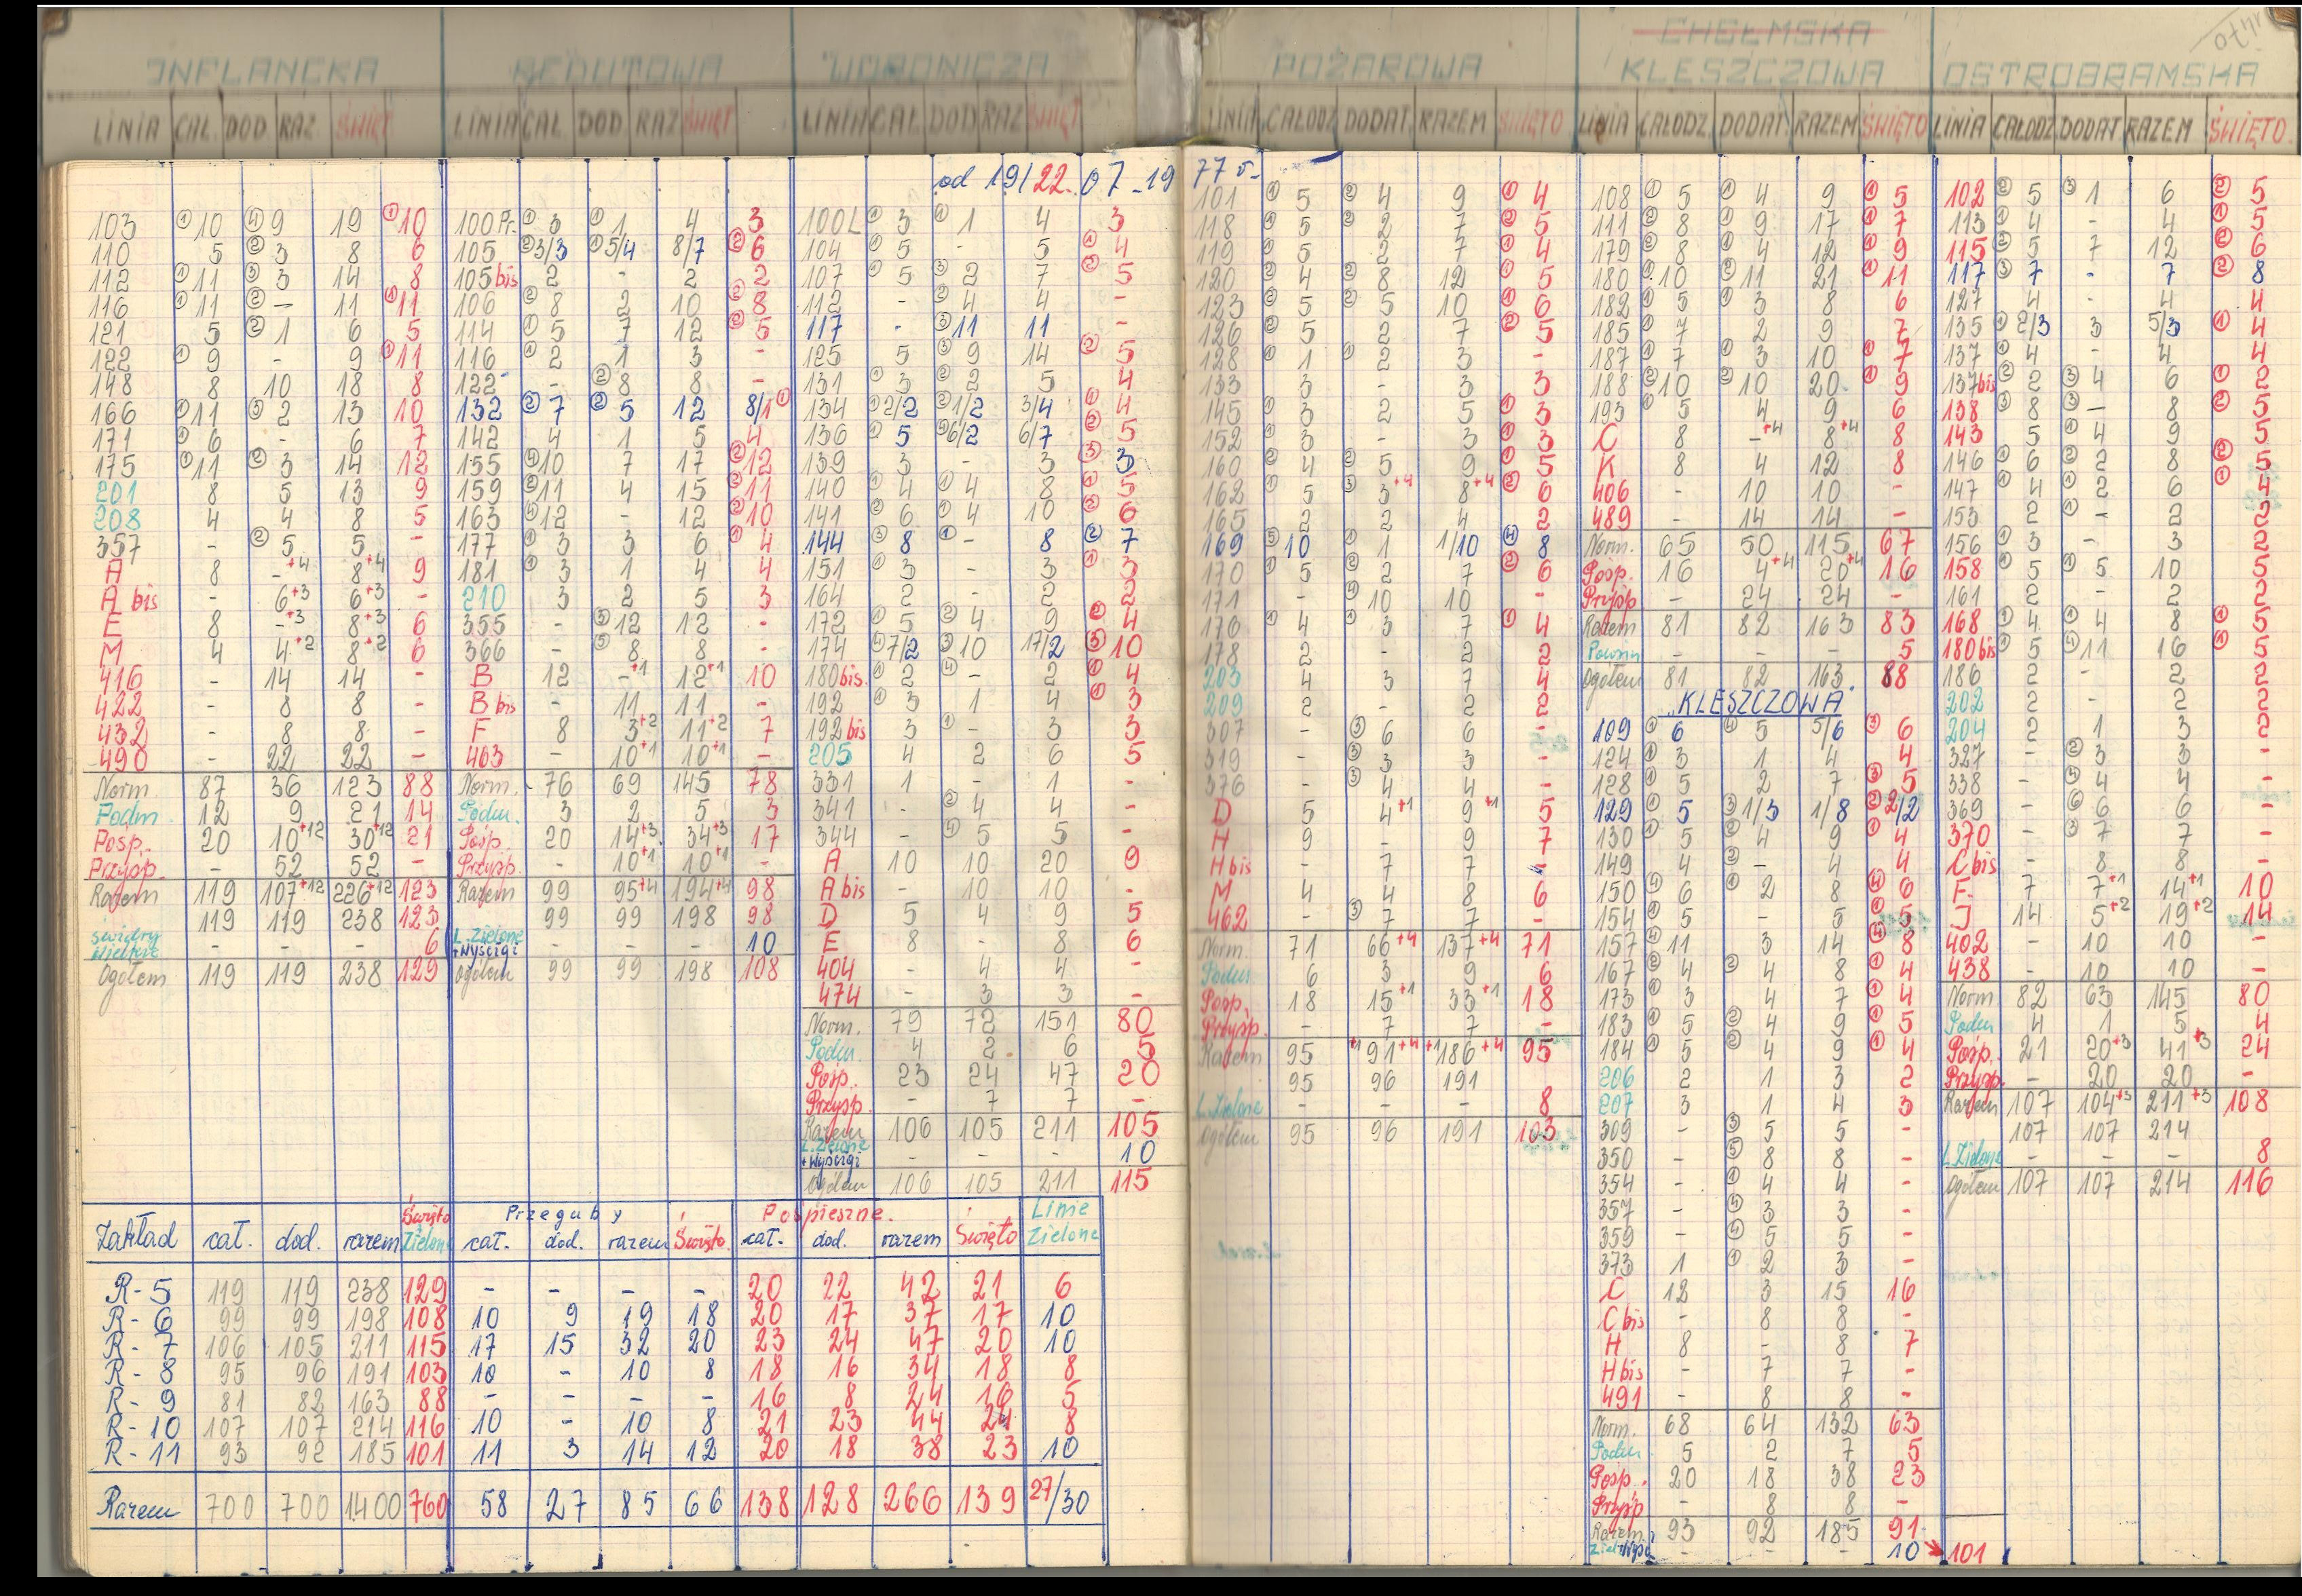 INFLANCKA
LINIA CAŁ. DOD RAZ ŚWIĘT
103 ① 10 ④ 9 19 ① 10
110 5 ② 3 8 6
112 ① 11 ③ 3 14 8
116 ① 11 ② – 11 ① 11
121 5 ② 1 6 5
122 ① 9 - 9 ① 11
148 8 10 18 8
166 ① 11 ③ 2 13 10
171 ① 6 - 6 7
175 ① 11 ② 3 14 12
201 8 5 13 9
208 4 4 8 5
357 - ② 5 5 -
A 8 -+4 8+4 9
A bis - 6+3 6+3 -
E 8 -+3 8+3 6
M 4 4+2 8+2 6
416 - 14 14 -
422 - 8 8 -
432 - 8 8 -
490 - 22 22 -
Norm 87 36 123 88
Podm 12 9 21 14
Posp. 20 10+12 30+12 21
Przysp. - 52 52 -
Razem 119 107+12 226+12 123
119 119 238 123
- - - 6
Ogółem 119 119 238 129
REDUTOWA
LINIA CAŁ DOD RAZ ŚWIĘT
100 Pr. ① 3 ① 1 4 3
105 ② 3/3 ① 5/4 8/7 ② 6
105 bis 2 - 2 2
106 ② 8 2 10 ② 8
114 ① 5 7 12 ② 5
116 ① 2 1 3 -
122 - ② 8 8 -
132 ② 7 ② 5 12 8/1 ①
142 4 1 5 4
155 ④ 10 7 17 ② 12
159 ② 11 4 15 ② 11
163 ④ 12 - 12 ② 10
177 ① 3 3 6 ① 4
181 ① 3 1 4 4
210 3 2 5 3
355 - ③ 12 12 -
366 - ⑤ 8 8 -
B 12 -+1 12+1 10
B bis - 11 11 -
F 8 3+2 11+2 7
463 - 10+1 10+1 -
Norm. 76 69 145 78
Podm. 3 2 5 3
Posp. 20 14+3 34+3 17
Przysp. - 10+1 10+1 -
Razem 99 95+4 194+4 98
99 99 198 98
L. Zielone
+Wyścigi - - - 10
Ogółem 99 99 198 108
WORONICZA
LINIA CAŁ DOD RAZ ŚWIĘT
od 19/22. 07 _ 19
100 L ① 3 ① 1 4 3
104 ① 5 - 5 ① 4
107 ① 5 ③ 2 7 ② 5
112 - ② 4 4 -
117 - ③ 11 11 -
125 5 ③ 9 14 ② 5
131 ① 3 ② 2 5 4
134 ① 2/2 ② 1/2 3/4 ① 4
136 ② 5 ③ 6/2 6/7 ② 5
139 3 - 3 ③ 3
140 ① 4 ① 4 8 ① 5
141 ② 6 ① 4 10 ② 6
144 ③ 8 ① - 8 ② 7
151 ① 3 - 3 ① 3
164 2 - 2 2
172 ① 5 ② 4 9 ② 4
174 ④ 7/2 ③ 10 17/2 ⑤ 10
180 bis. ① 2 ④ - 2 ① 4
192 ① 3 1 4 ① 3
192 bis 3 ① - 3 3
205 4 2 6 5
331 1 - 1 -
341 - ② 4 4 -
344 - ④ 5 5 -
A 10 10 20 9
A bis - 10 10 -
D 5 4 9 5
E 8 - 8 6
404 - 4 4 -
474 - 3 3 -
Norm. 79 72 151 80
Podm. 4 2 6 5
Posp. 23 24 47 20
Przysp. - 7 7 -
Razem 106 105 211 105
L. Zielone
+Wyścigi - - - 10
Ogółem 106 105 211 115
Zakład cał. dod. razem Święto Zielone Przeguby cał. dod. razem Święto. Pospieszne. cał. dod. razem Święto Linie Zielone
R - 5 119 119 238 129 - - - - 20 22 42 21 6
R - 6 99 99 198 108 10 9 19 18 20 17 37 17 10
R - 7 106 105 211 115 17 15 32 20 23 24 47 20 10
R - 8 95 96 191 103 10 - 10 8 18 16 34 18 8
R - 9 81 82 163 88 - - - - 16 8 24 16 5
R - 10 107 107 214 116 10 - 10 8 21 23 44 24 8
R - 11 93 92 185 101 11 3 14 12 20 18 38 23 10
Razem 700 700 1400 760 58 27 85 66 138 128 266 139 27/30
POŻAROWA
LINIA CAŁODZ DODAT. RAZEM ŚWIĘTO
77 r.
101 ① 5 ② 4 9 ① 4
118 ① 5 ② 2 7 ② 5
119 ① 5 2 7 ① 4
120 ② 4 ② 8 12 ① 5
123 ② 5 ② 5 10 ① 6
126 ② 5 2 7 ② 5
128 ① 1 ① 2 3 -
133 3 - 3 3
145 ① 3 2 5 ① 3
152 ① 3 - 3 ① 3
160 ② 4 ② 5 9 ① 5
162 ① 5 ③ 3+4 8+4 ② 6
165 2 2 4 2
169 ⑤ 10 ① 1 1/10 ④ 8
170 ① 5 ② 2 7 ② 6
171 - ④ 10 10 -
176 ① 4 ① 3 7 ① 4
178 2 - 2 2
203 4 3 7 4
209 2 - 2 2
307 - ③ 6 6 -
319 - ③ 3 3 -
376 - ③ 4 4 -
D 5 4+1 9+1 5
H 9 - 9 7
H bis - 7 7 -
M 4 4 8 6
462 - ③ 7 7 -
Norm. 71 66+4 137+4 71
Podm 6 3 9 6
Posp. 18 15+1 33+1 18
Przysp. - 7 7 -
Razem 95 +1 91+4 +1 186+4 95
95 96 191
L. Zielone - - - 8
Ogółem 95 96 191 103
CHEŁMSKA
KLESZCZOWA
LINIA CAŁODZ. DODAT. RAZEM ŚWIĘTO
108 ① 5 ① 4 9 ① 5
111 ② 8 ① 9 17 ① 7
179 ② 8 ① 4 12 ① 9
180 10 ② 11 21 ① 11
182 ① 5 ① 3 8 6
185 ① 7 2 9 7
187 ① 7 ① 3 10 ① 7
188 ② 10 ② 10 20 ① 9
193 ① 5 4 9 6
C 8 -+4 8+4 8
K 8 4 12 8
406 - 10 10 -
489 - 14 14 -
Norm. 65 50 115 67
Posp. 16 4+4 20+4 16
Przysp - 24 24 -
Razem 81 82 163 83
- - - 5
Ogółem 81 82 163 88
"KLESZCZOWA"
109 ① 6 ④ 5 5/6 ③ 6
124 ① 3 1 4 4
128 ① 5 2 7 ③ 5
129 ① 5 ③ 1/3 1/8 ② 2/2
130 ① 5 ② 4 9 ① 4
149 4 ② - 4 4
150 ④ 6 ① 2 8 ④ 6
154 ① 5 - 5 ① 5
157 ④ 11 3 14 ④ 8
167 ② 4 ② 4 8 ① 4
173 ① 3 4 7 ① 4
183 ① 5 ② 4 9 ① 5
184 ① 5 ② 4 9 ① 4
206 2 1 3 2
207 3 1 4 3
309 - ③ 5 5 -
350 - ⑤ 8 8 -
354 - ① 4 4 -
357 - ④ 3 3 -
359 - ④ 5 5 -
373 1 ① 2 3 -
C 12 3 15 16
C bis - 8 8 -
H 8 - 8 7
H bis - 7 7 -
491 - 8 8 -
Norm. 68 64 132 63
Podm 5 2 7 5
Posp. 20 18 38 23
Przysp - 8 8 -
Razem 93 92 185 91
- - - 10 101
OSTROBRAMSKA
LINIA CAŁODZ. DODAT RAZEM ŚWIĘTO.
102 ② 5 ③ 1 6 ② 5
113 ① 4 - 4 ① 5
115 ② 5 7 12 ② 6
117 ③ 7 - 7 ② 8
127 4 - 4 4
135 ① 2/3 3 5/3 ① 4
137 ① 4 - 4 4
137 bis ② 2 ③ 4 6 ① 2
138 ③ 8 ③ - 8 ② 5
143 5 ① 4 9 5
146 ① 6 ② 2 8 ② 5
147 ① 4 ① 2 6 ① 4
153 2 ① - 2 2
156 ① 3 - 3 2
158 ① 5 ① 5 10 5
161 2 - 2 2
168 ① 4 ① 4 8 ① 5
180 bis ① 5 ④ 11 16 ① 5
186 2 - 2 2
202 2 - 2 2
204 2 1 3 2
327 - ② 3 3 -
338 - ④ 4 4 -
369 - ⑥ 6 6 -
370 - ③ 7 7 -
C bis - 8 8 -
F. 7 7+1 14+1 10
J 14 5+2 19+2 14
402 - 10 10 -
438 - 10 10 -
Norm 82 63 145 80
Podm 4 1 5 4
Posp. 21 20+3 41+3 24
Przysp. - 20 20 -
Razem 107 104+3 211+3 108
107 107 214
L. Zielone - - - 8
Ogółem 107 107 214 116